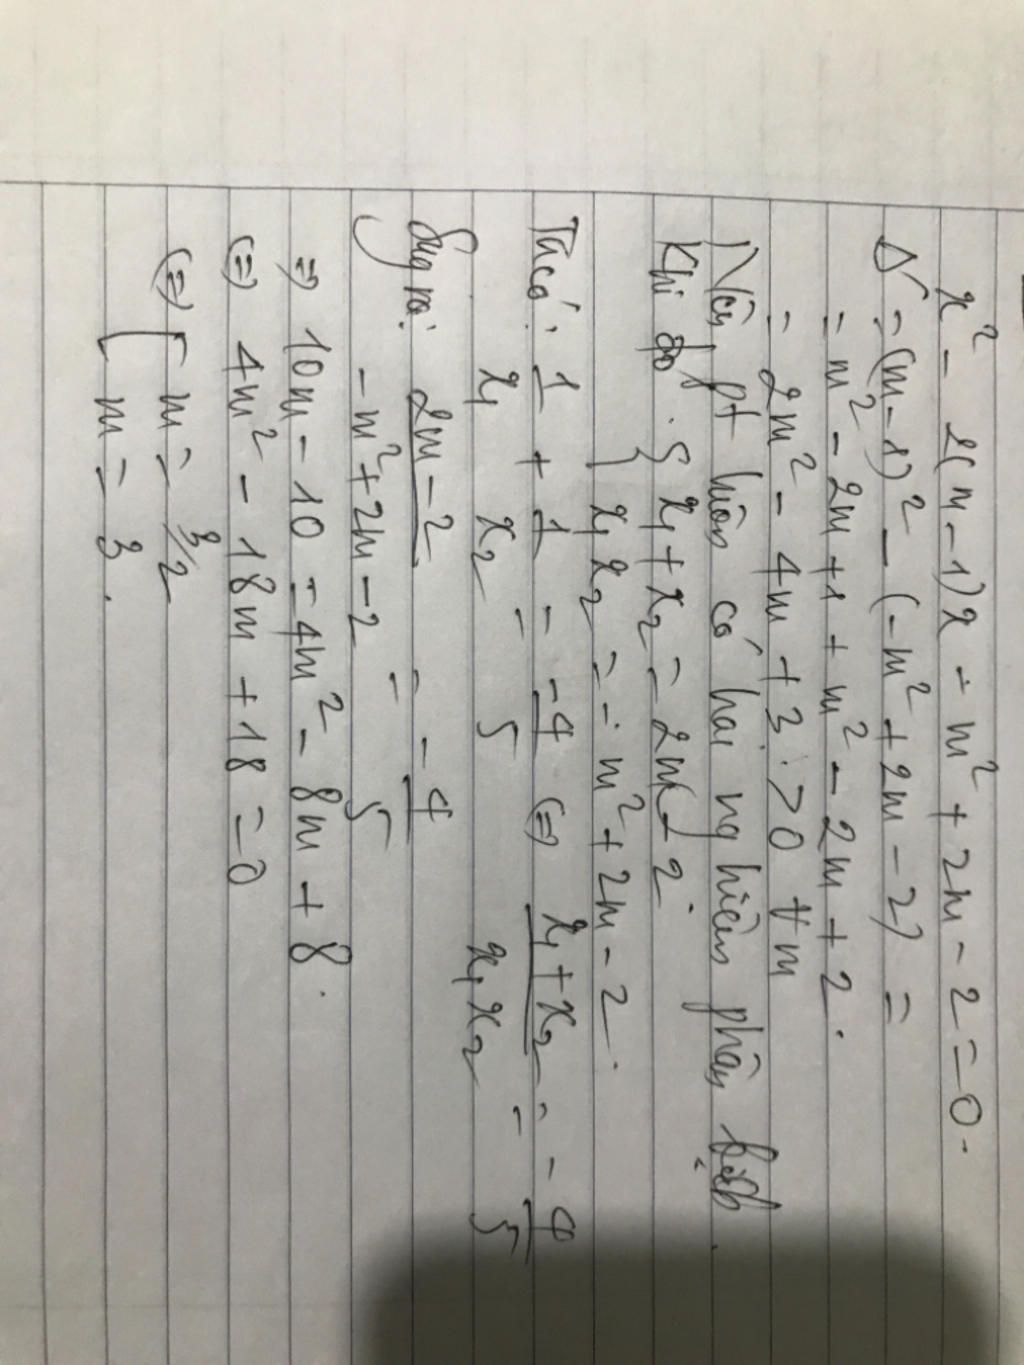 x² - 2(m-1)x - m² + 2m - 2 = 0.
Δ' = (m-1)² - (-m² + 2m - 2) =
= m² - 2m + 1 + m² - 2m + 2.
= 2m² - 4m + 3 > 0 ∀m
Nên pt luôn có hai nghiệm phân biệt.
Khi đó. { x₁ + x₂ = 2m - 2.
x₁x₂ = - m² + 2m - 2.
Ta có: 1/x₁ + 1/x₂ = -4/5 (=) (x₁ + x₂)/(x₁x₂) = -4/5
Suy ra: (2m - 2)/(-m² + 2m - 2) = -4/5
=) 10m - 10 = 4m² - 8m + 8.
(=) 4m² - 18m + 18 = 0
(=) [ m = 3/2
m = 3.